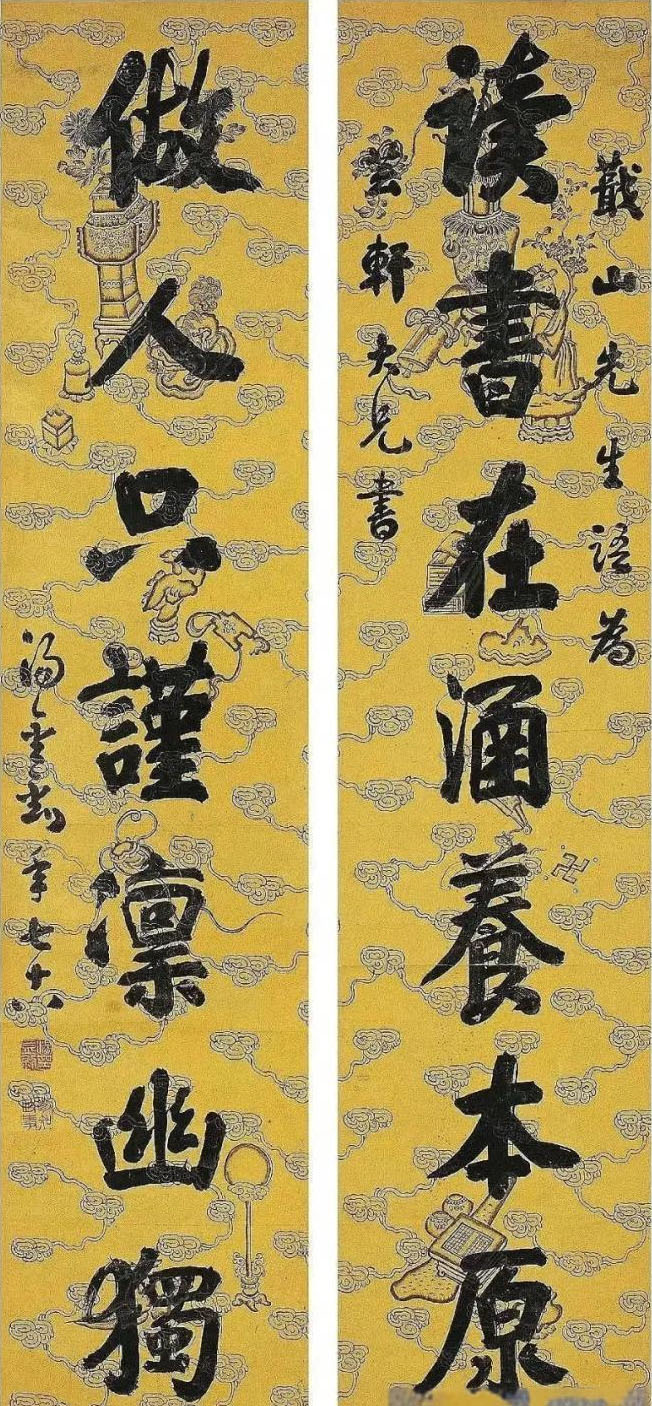 蕺山先生語為
读書在涵養本原
軒大兄書
做人只謹凛幽獨
湯金釗年七十八